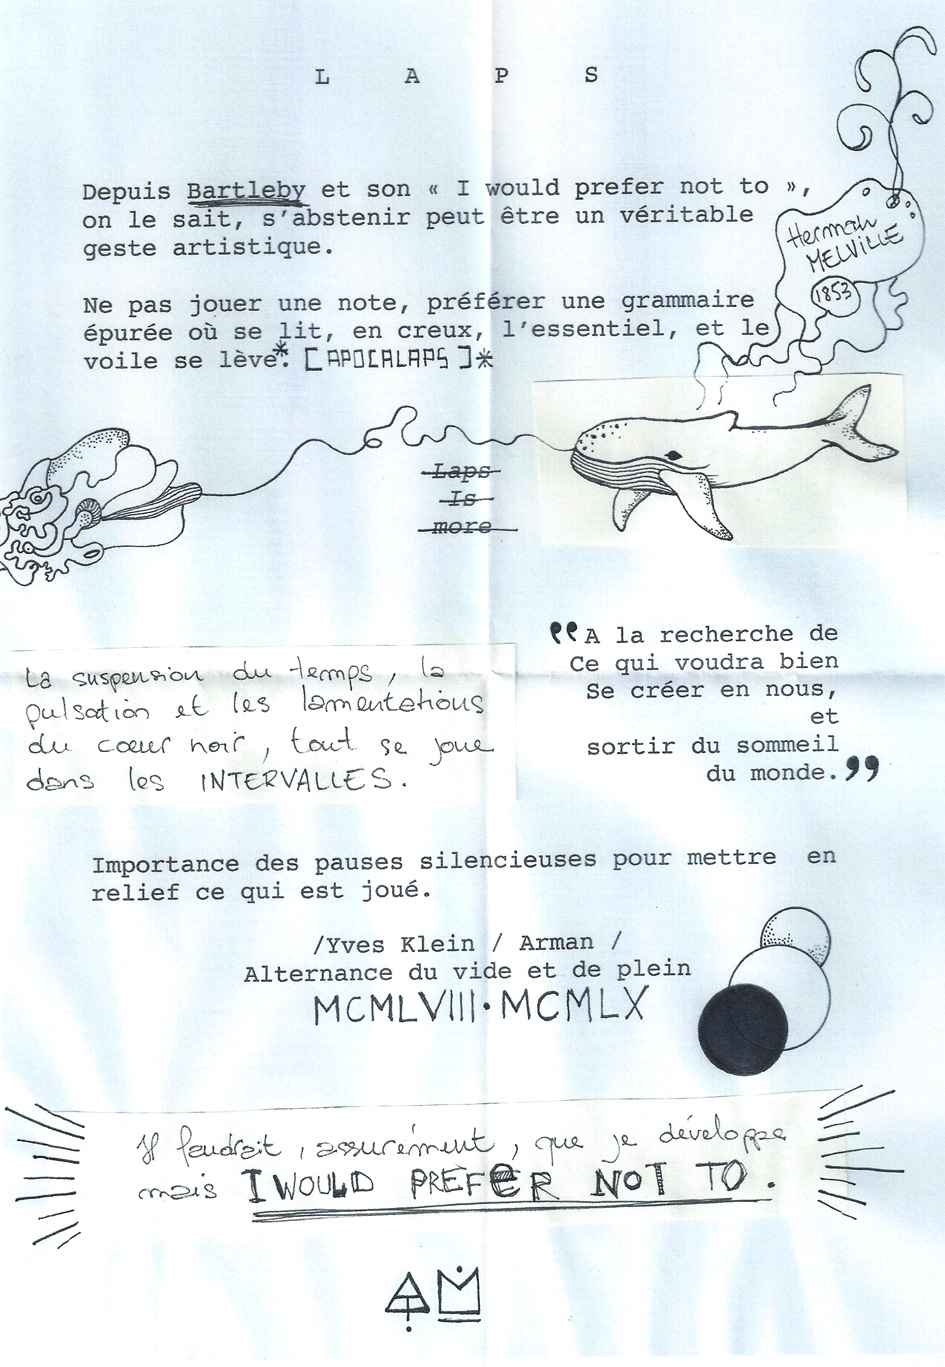 L A P S
Depuis Bartleby et son « I would prefer not to »,
on le sait, s'abstenir peut être un véritable
geste artistique.
Herman
MELVILLE
1853
Ne pas jouer une note, préférer une grammaire
épurée où se lit, en creux, l'essentiel, et le
voile se lève*. [APOCALAPS]*
Laps
Is
more
La suspension du temps, la
pulsation et les lamentations
du cœur noir, tout se joue
dans les INTERVALLES.
"A la recherche de
Ce qui voudra bien
Se créer en nous,
et
sortir du sommeil
du monde."
Importance des pauses silencieuses pour mettre en
relief ce qui est joué.
/Yves Klein / Arman /
Alternance du vide et de plein
MCMLVIII·MCMLX
Il faudrait, assurément, que je développe
mais I WOULD PREFER NOT TO.